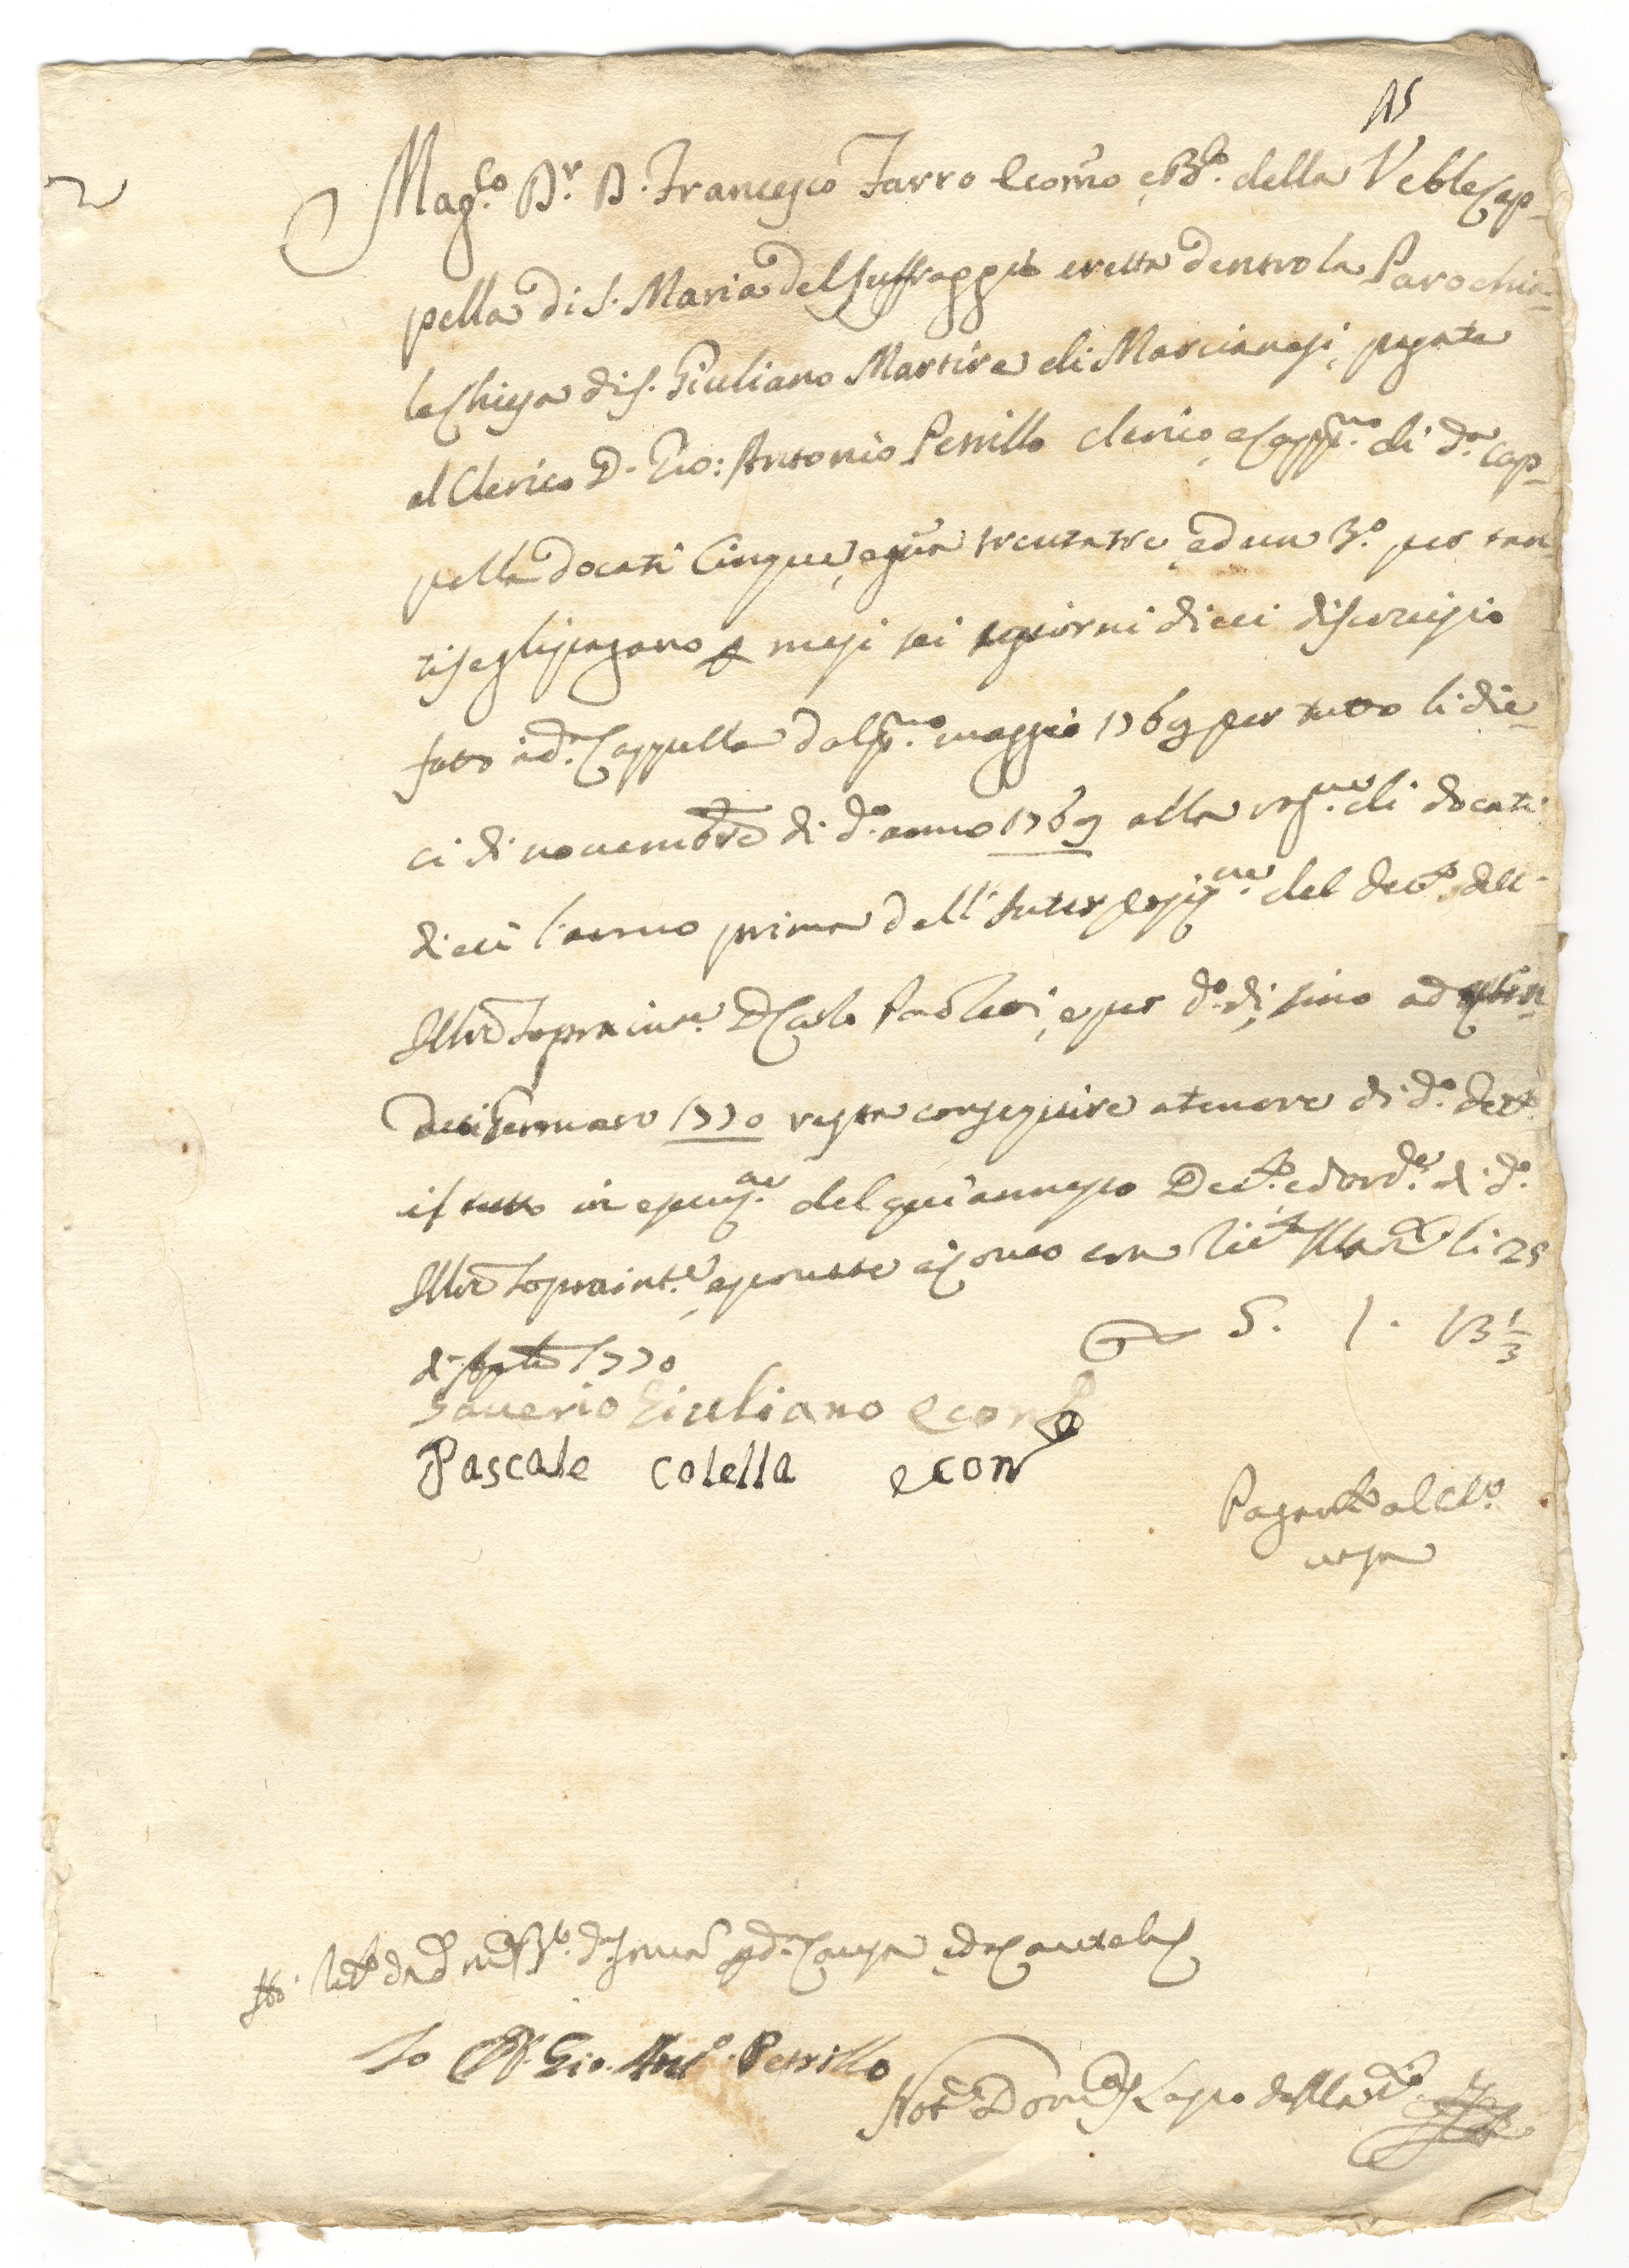 15
Mag.co D.r D. Francesco Farro Econ.o e B.o della V.ble Cap-
pella di S. Maria del Suffraggio eretta dentro la Parochia-
le Chiesa di S. Giuliano Martire di Marcianesi, pagate
al Clerico D. Gio: Antonio Petrillo clerico, e Capp.no di d.a Cap-
pella docati Cinque, e g.na trentatre, ed un 3.o per tan
ti se gli pagano p mesi sei e giorni dieci di servigio
fatto a d.a Cappella dal p.mo maggio 1769 per tutto li die-
ci di novembre di d.o anno 1769 alla rag.ne di docati
dieci l'anno prima dell' del dec.to dell'
Ill.re Sopraint.e D. Carlo Paoletti, e per d.o di, sino ad
Gennaro 1770 resta conseguire a tenore di d.o dec.to
il tutto in esecuz.ne del qui annesso Dec.to ed ord.e di d.o
Ill.re Sopraint.e, e Marc. li 25
di 1770
5. 1. 13 1/3
Saverio Giuliano econ.o
Pascale Colella econ
Pagar.to al Cl.o
usa
d.a Causa, e da Cautela
Io Cl. Gio. Ant.o Petrillo
Not.r Dom.co